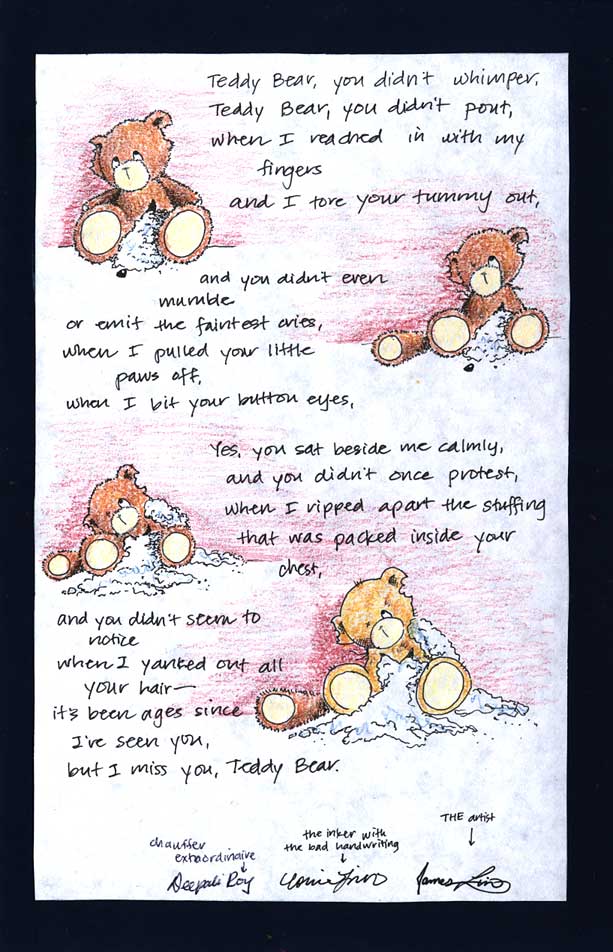 Teddy Bear, you didn't whimper,
Teddy Bear, you didn't pout,
when I reached in with my
fingers
and I tore your tummy out,
and you didn't even
mumble
or emit the faintest cries,
when I pulled your little
paws off,
when I bit your button eyes,
Yes, you sat beside me calmly,
and you didn't once protest,
when I ripped apart the stuffing
that was packed inside your
chest,
and you didn't seem to
notice
when I yanked out all
your hair—
it's been ages since
I've seen you,
but I miss you, Teddy Bear.
THE artist
the inker with
the bad handwriting
chauffer
extraordinaire
Deepali Roy
James